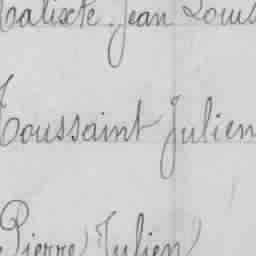 Calixte Jean Louis
Toussaint Julien
Pierre Julien